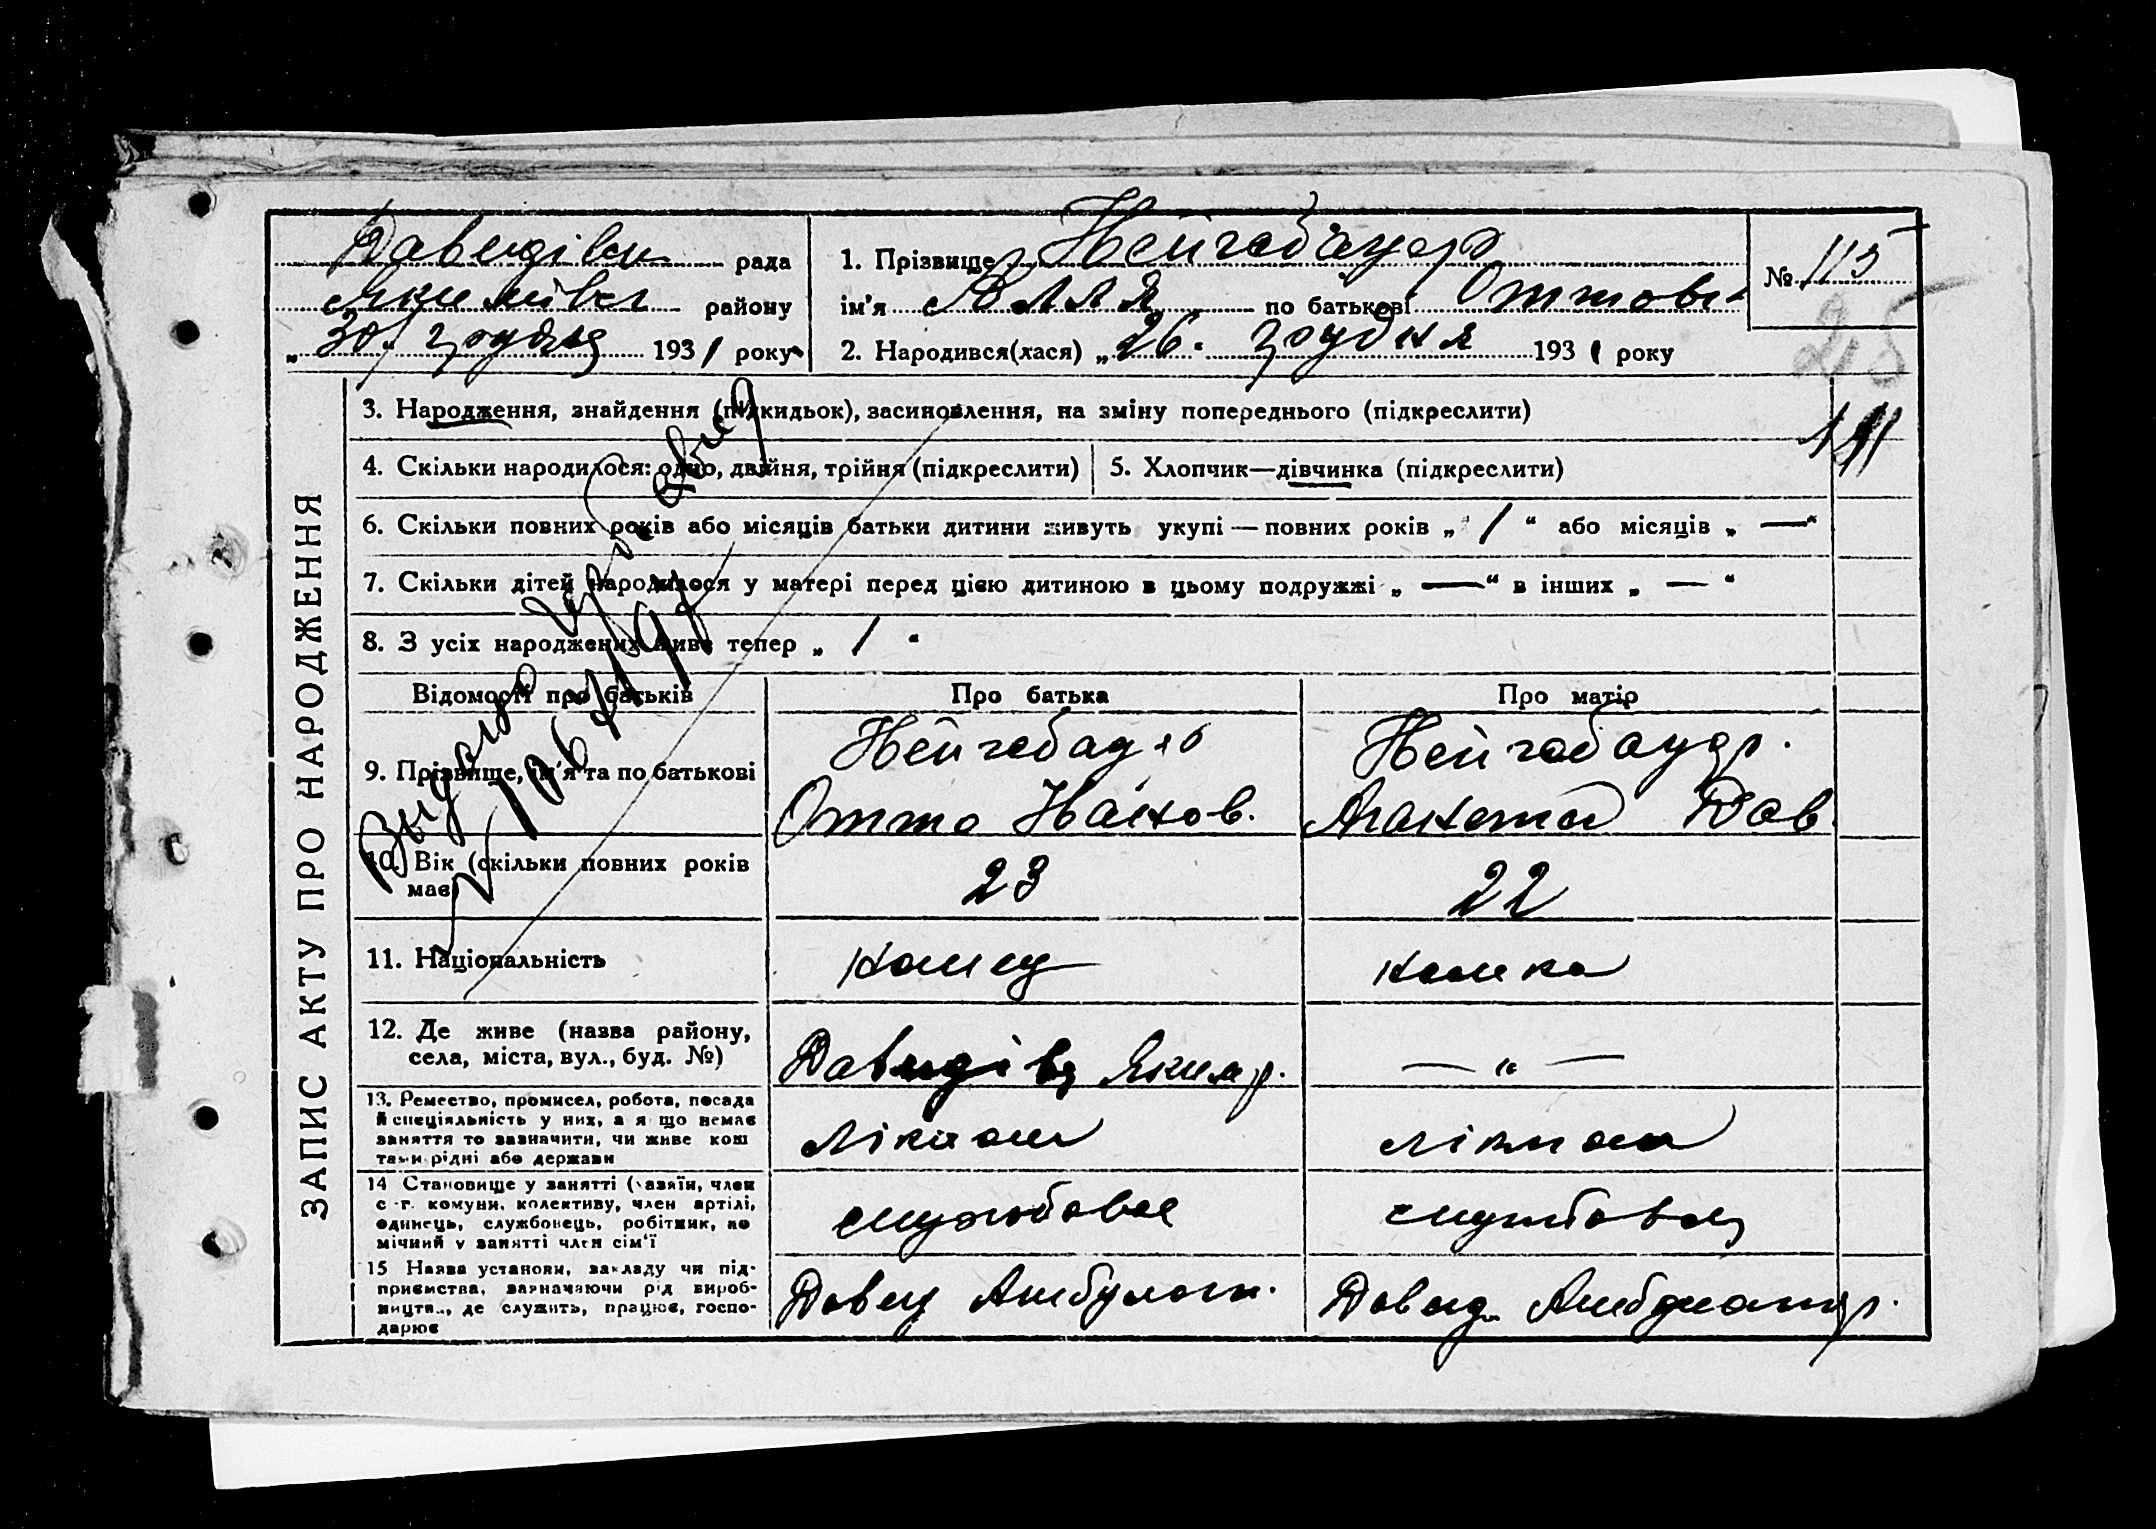 ЗАПИС АКТУ ПРО НАРОДЖЕННЯ
Давидівськ рада
Якимівськ району
„30“ грудня 1931 року
1. Прізвище Нейгебауер
ім'я по батькові Оттовн
2. Народився(лася) „26“ грудня 1931 року
№ 115
25
3. Народження, знайдення (підкидьок), засиновлення, на зміну попереднього (підкреслити)
4. Скільки народилося: одно, двійня, трійня (підкреслити)
5. Хлопчик—дівчинка (підкреслити)
6. Скільки повних років або місяців батьки дитини живуть укупі — повних років „ 1 “ або місяців „ — “
7. Скільки дітей народилося у матері перед цією дитиною в цьому подружжі „ — “ в інших „ — “
8. З усіх народжених живе тепер „ 1 “
Відомості про батьків
Про батька
Про матір
9. Прізвище, ім'я та по батькові
Нейгебауер
Отто
Нейгебауер.
Дав.
10. Вік (скільки повних років має)
23
22
11. Національність
німец
німка
12. Де живе (назва району, села, міста, вул., буд. №)
Давидівц Яким р.
— „ —
13. Ремество, промисел, робота, посада й спеціяльність у них, а якщо немає заняття то зазначити, чи живе коштами рідні або держави
лікпом
лікпом
14 Становище у занятті (хазяїн, член с.-г. комуни, колективу, член артілі, одинець, службовець, робітник, помічний у занятті член сім'ї
службовец
службовец
15 Назва установи, закладу чи підприємства, зазначаючи рід виробництва, де служить, працює, господарює
Давид Амбулат.
Давид. Амбулатор.